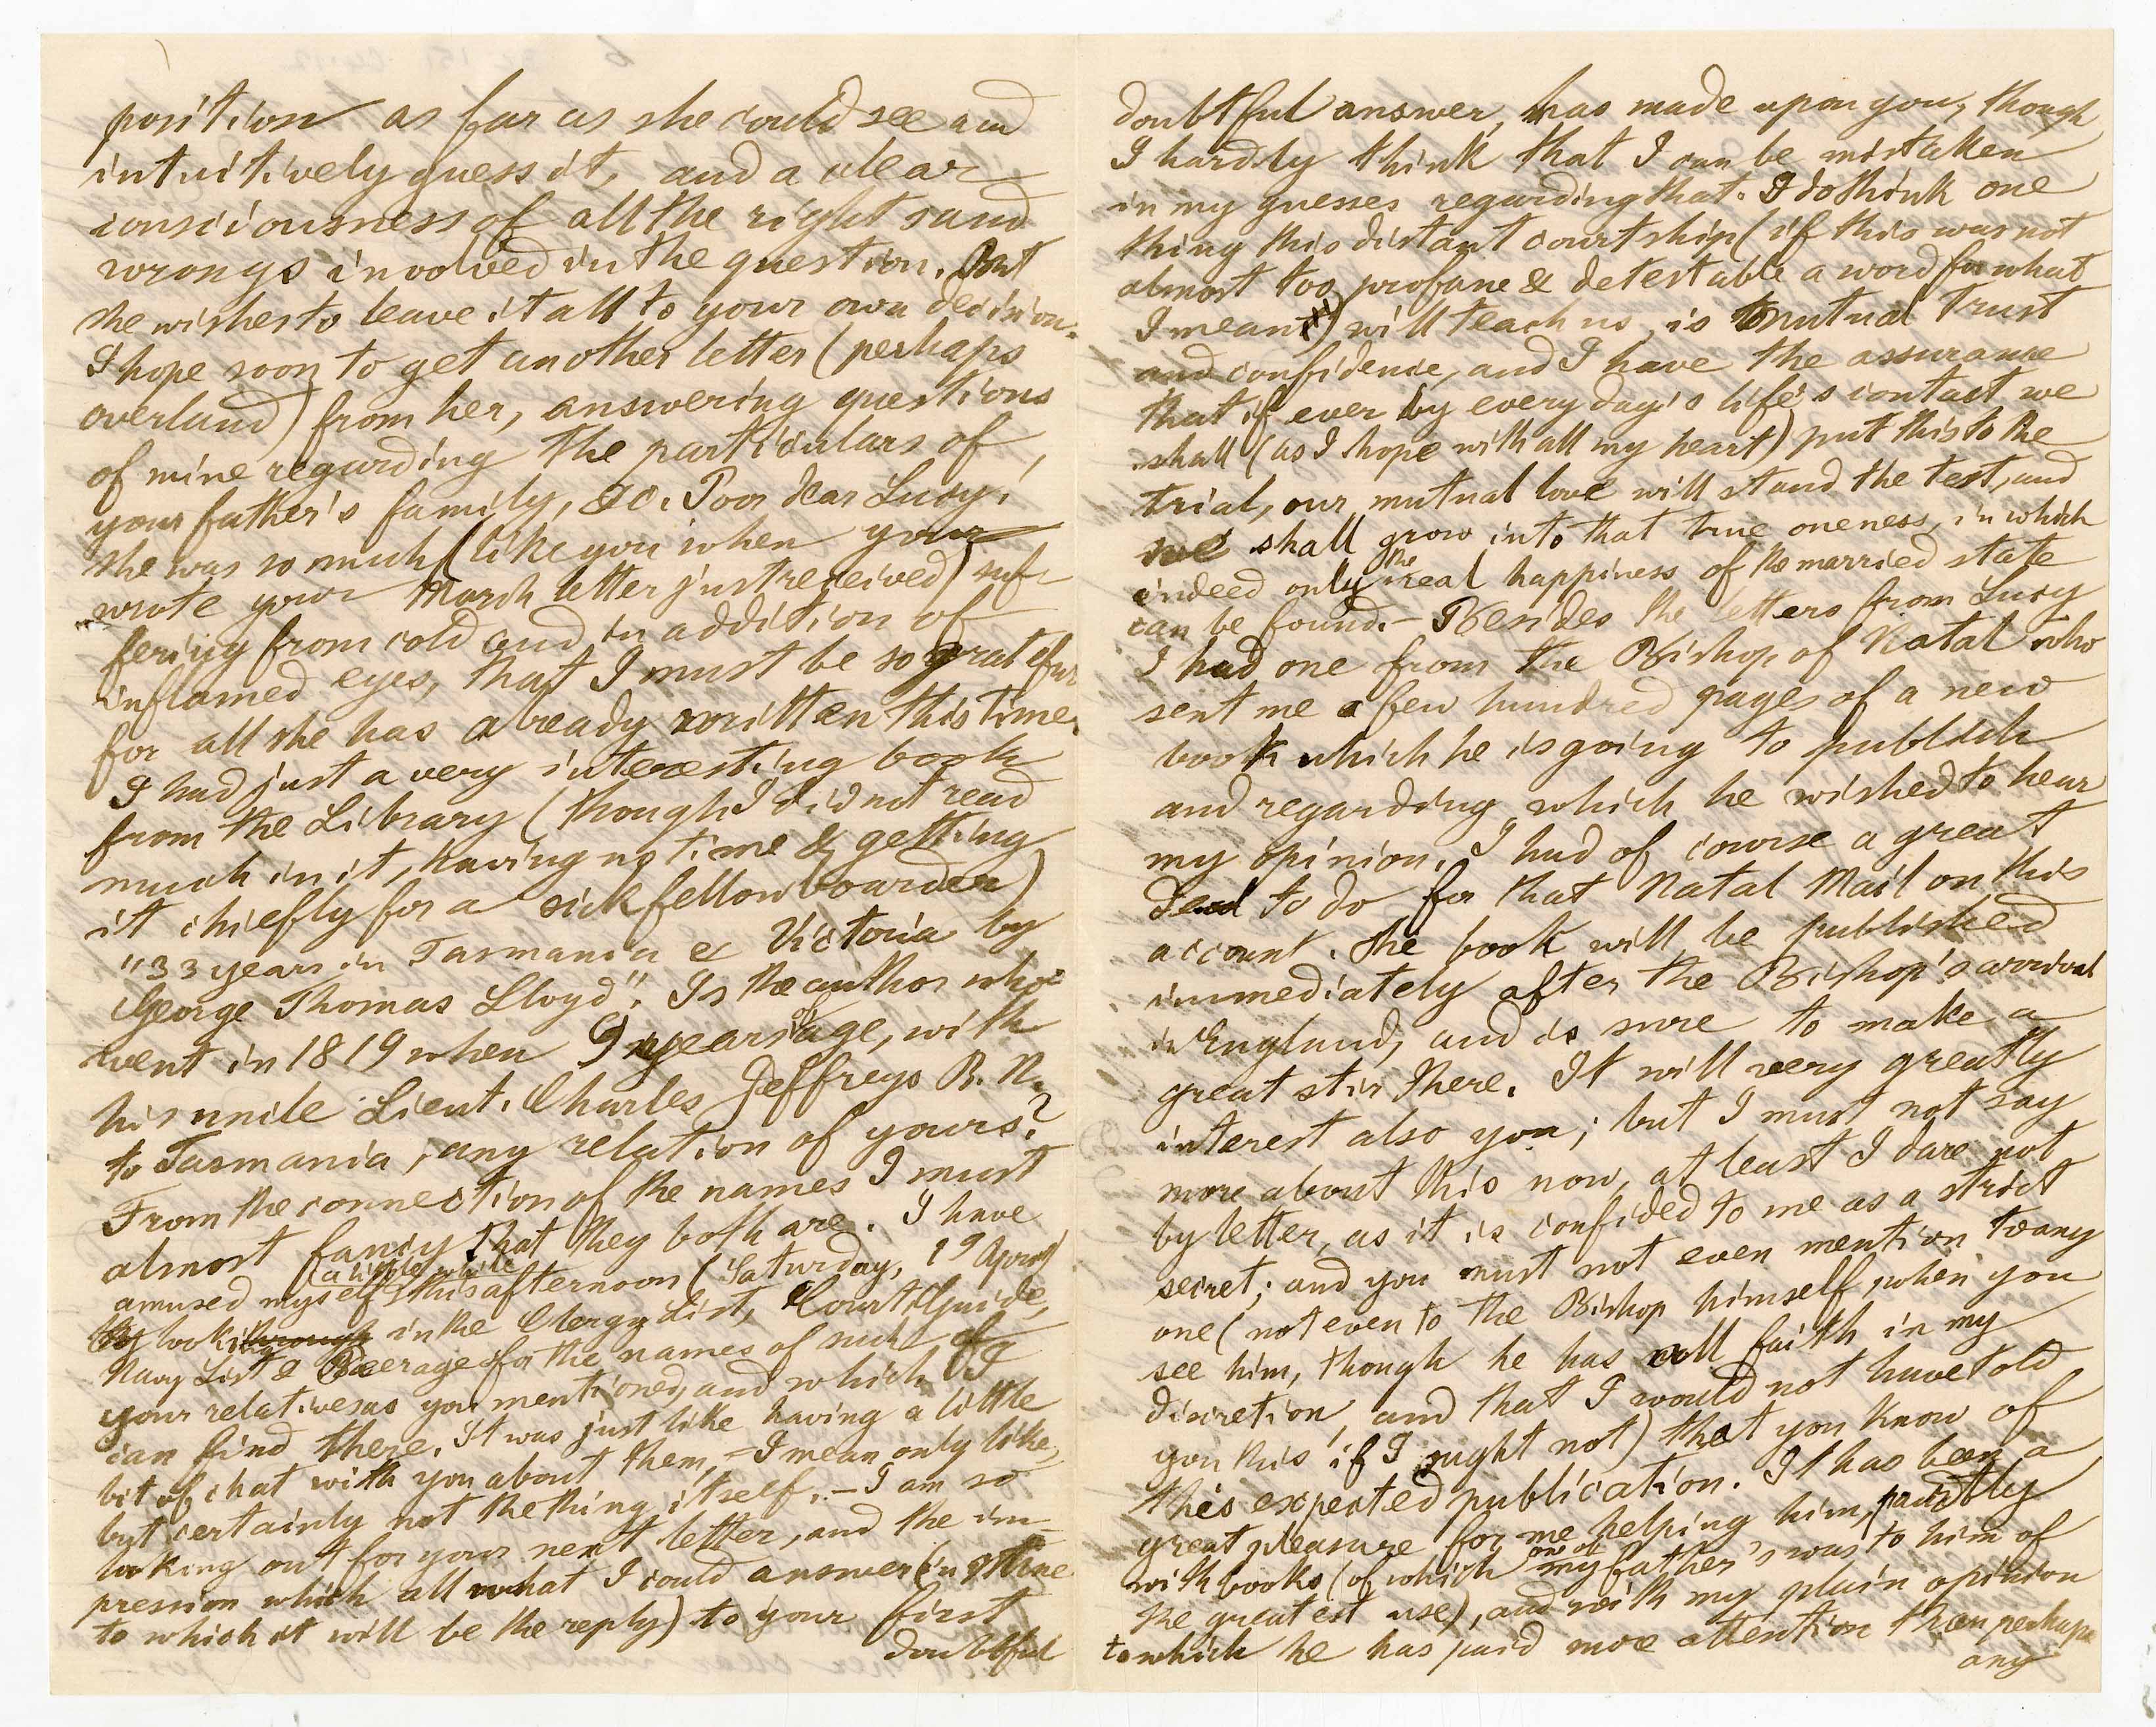 position as far as she could see and
intuitively guess it, and a clear
consciousness of all the rights and
wrongs involved in the question. But
she wishes to leave it all to your own decision.
I hope soon to get another letter (perhaps
overland) from her, answering questions
of mine regarding the particulars of
your father's family, &c. Poor dear Lucy!
she was so much (like you when your
wrote your March letter just received) suf-
fering from cold and in addition of
inflamed eyes, that I must be so grateful
for all she has already written this time.
I had just a very interesting book
from the Library (though I did not read
much in it, having no time & getting
it chiefly for a sick fellow boarder)
"33 years in Tasmania & Victoria by
George Thomas Lloyd". Is the author who
went in 1819 when 9 years of age, with
his uncle Lieut. Charles Jeffreys R. N.
to Tasmania, any relation of yours?
From the connection of the names I must
almost fancy that they both are. I have
amused myself (a little while) this afternoon (Saturday, 19 April)
by looking through in the Clergy List, Court Guide,
Navy List & Peerage for the names of such of
your relatives as you mentioned, and which I
can find there. It was just like having a little
bit of chat with you about them, – I mean only like,
but certainly not the thing itself. – I am so
looking out for your next letter, and the im-
pression which all what I could answer (in
to which it will be the reply) to your first
doubtful
doubtful answer, has made upon you, though
I hardly think that I can be mistaken
in my guesses regarding that. I do think one
thing this distant courtship (if this was not
almost too profane & detestable a word for what
I mean) will teach us, is mutual trust
and confidence, and I have the assurance
that if ever by every day's life's contact we
shall (as I hope with all my heart) put this to the
trial, our mutual love will stand the test, and
we shall grow into that true oneness, in which
indeed only the real happiness of the married state
can be found. – Besides the letters from Lucy
I had one from the Bishop of Natal who
sent me a few hundred pages of a new
book which he is going to publish
and regarding which he wished to hear
my opinion. I had of course a great
deal to do for that Natal Mail on this
account. The book will be published
immediately after the Bishop's arrival
in England, and is sure to make a
great stir there. It will very greatly
interest also you; but I must not say
more about this now, at least I dare not
by letter, as it is confided to me as a strict
secret; and you must not even mention to any
one (not even to the Bishop himself, when you
see him, though he has all faith in my
discretion, and that I would not have told
you this if I might not) that you know of
this expected publication. It has been a
great pleasure for me helping him, partly
with books (of which one of my father's was to him of
the greatest use), and with my plain opinion
to which he has paid more attention than perhaps
any